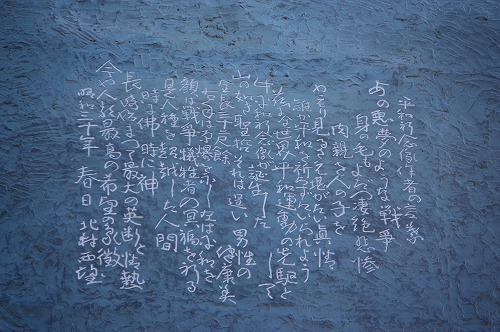 平和祈念像作者の言葉
あの悪夢のような戦争
身の毛もよだつ凄絶悲惨
肉親を人の子を
かえり見るさえ堪えがたい真情
誰か平和を祈らずにいられよう
茲に全世界平和運動の先駆として
平和祈念像が誕生した
山の如き聖哲それは逞しい男性の
健康美
全長三十二尺余
右手は原爆を示し左手は平和を
顔は戦争犠牲者の冥福を祈る
是人種を超越した人間
時に佛 時に神
長崎始まつて最大の英断と情熱
今や人類最高の希望の象徴
昭和三十年 春日 北村西望